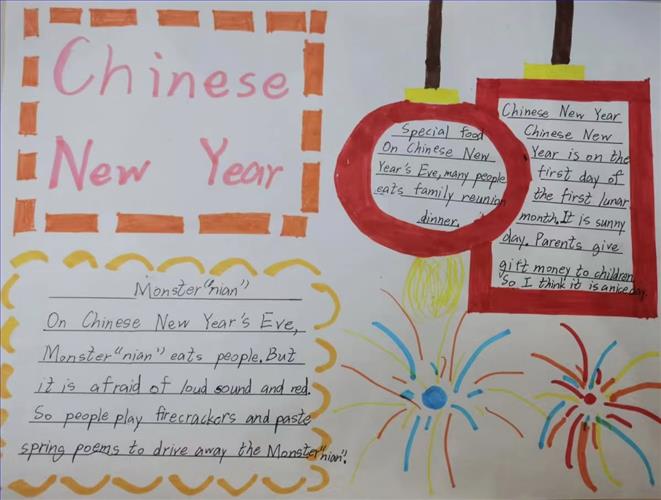 Chinese
New Year
Monster "nian"
On Chinese New Year's Eve,
Monster "nian" eats people. But
it is afraid of loud sound and red.
So people play firecrackers and paste
spring poems to drive away the Monster "nian".
Special Food
On Chinese New
Year's Eve, many people
eats family reunion
dinner.
Chinese New Year
Chinese New
Year is on the
first day of
the first lunar
month. It is sunny
day. Parents give
gift money to children
So I think it is a nice day.